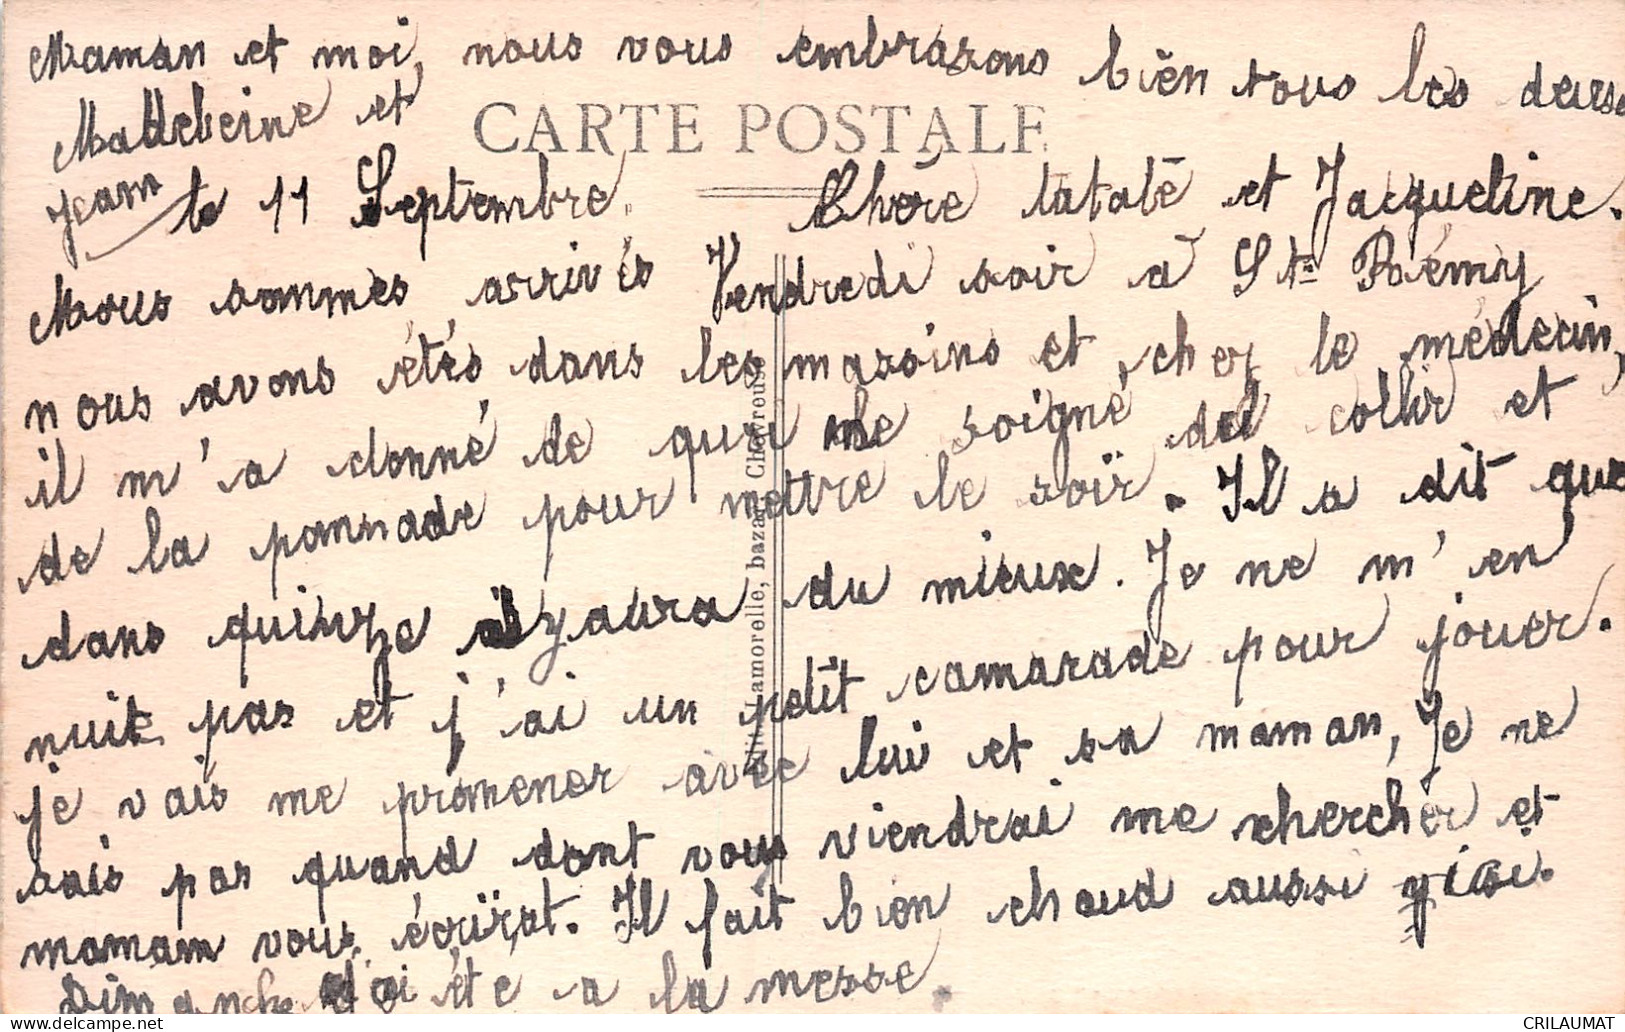 Maman et moi, nous vous embrasons bien tous les deuse
Madeleine et
Jean
CARTE POSTALE
le 11 Septembre.
Chère tataté et Jacqueline.
Nous sommes arrivés Vendredi soir à St Rémy
nous avons étés dans les magsins et chez le médecin,
il m'a donné de quri me soigné del collir et
de la pommade pour mettre le soïr. Il a dit que
dans quinze ilyaura du mieux. Je ne m'en
nuit pas et j'ai un petit camarade pour jouer.
je vais me promener avec lui et sa maman, Je ne
sais pas quand dont vous viendrai me chercher et
mamam vous écrirat. Il fait bien chaud aussi
Dimanche J'ai été a la messe.
Edit. Lamorelle, bazar, Chevreuse
CRILAUMAT